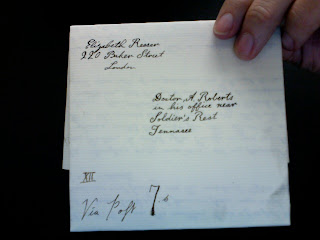 Elizabeth Reeser
220 Baker Street
London
Doctor A Roberts
in his office near
Soldier's Rest
Tennasee
XII
Via Post 7